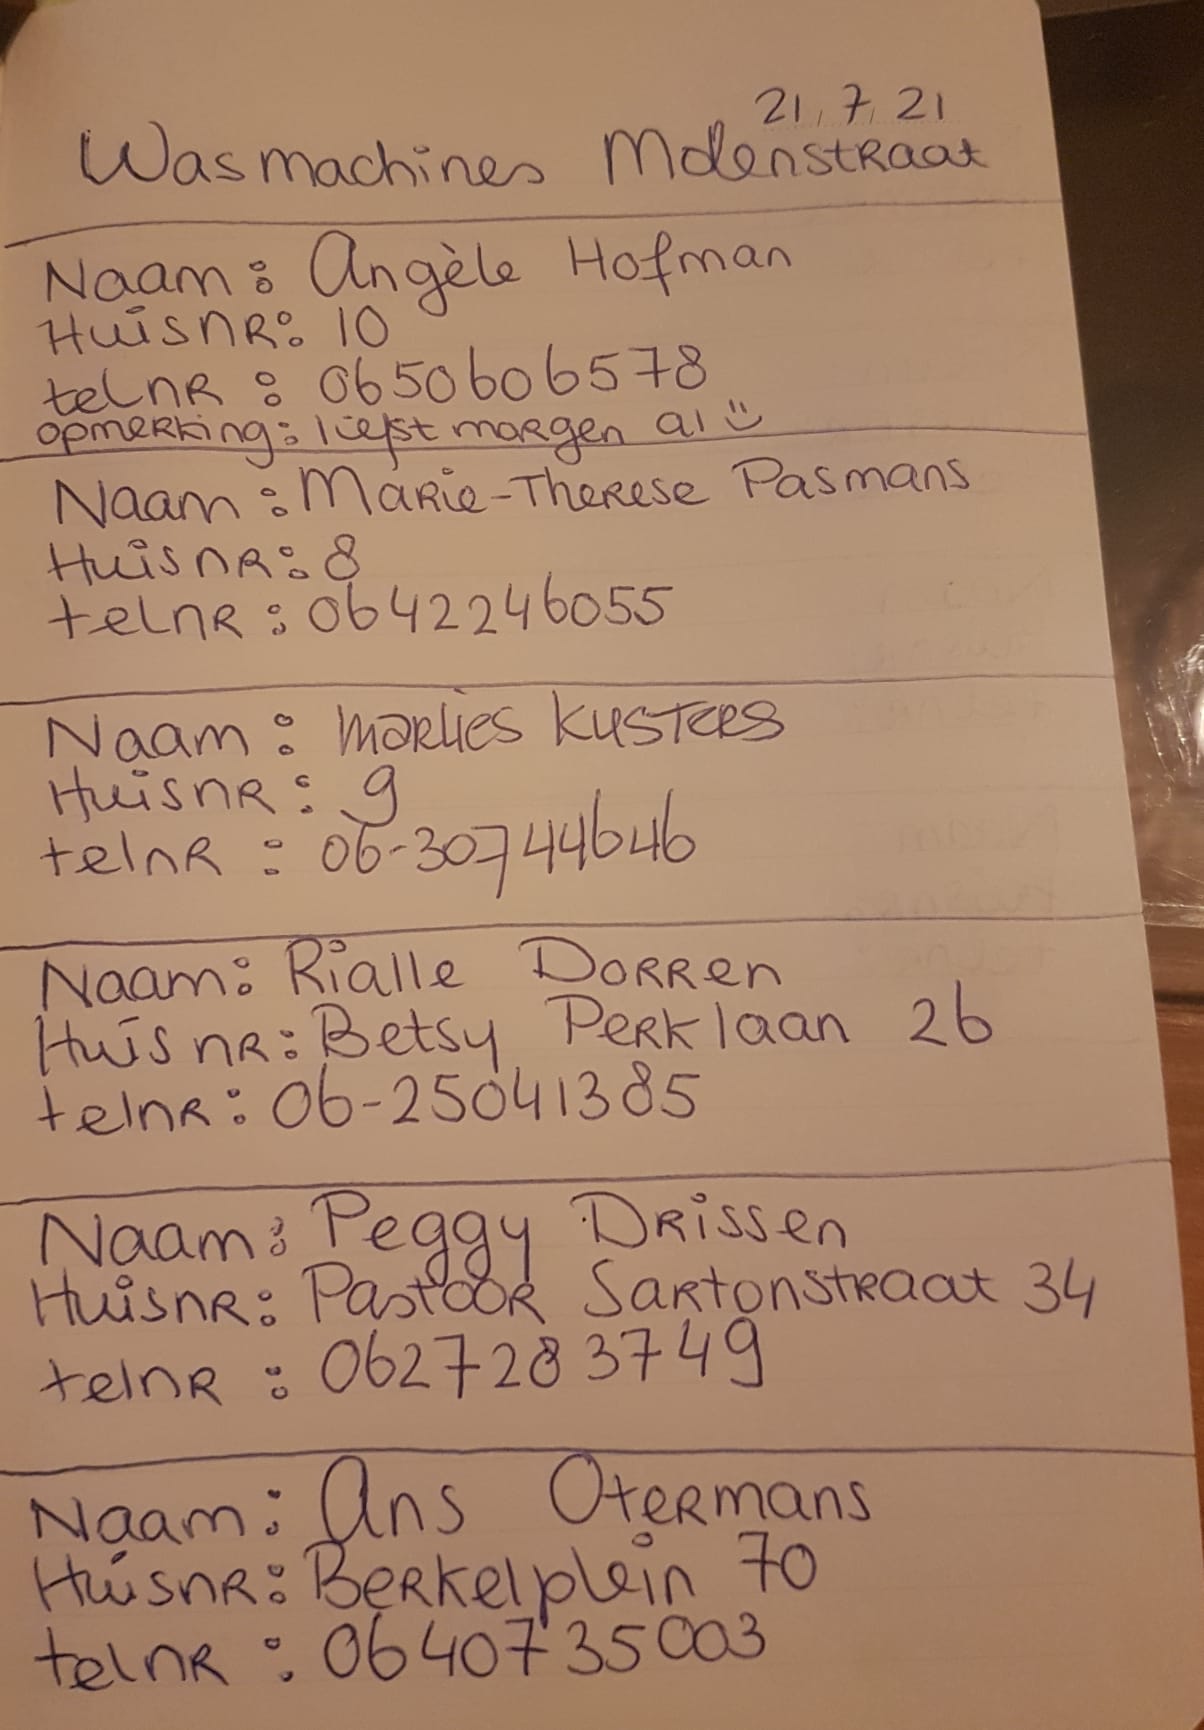 21, 7, 21
Wasmachines Molenstraat
Naam: Angèle Hofman
Huisnr: 10
telnr: 0650606578
opmerking: liefst morgen al ☺
Naam: Marie-Therese Pasmans
Huisnr: 8
telnr: 0642246055
Naam: Marlies Kusters
Huisnr: 9
telnr: 06-30744646
Naam: Rialle Dorren
Huisnr: Betsy Perklaan 26
telnr: 06-25041385
Naam: Peggy Drissen
Huisnr: Pastoor Sartonstraat 34
telnr: 0627283749
Naam: Ans Otermans
Huisnr: Berkelplein 70
telnr: 0640735003